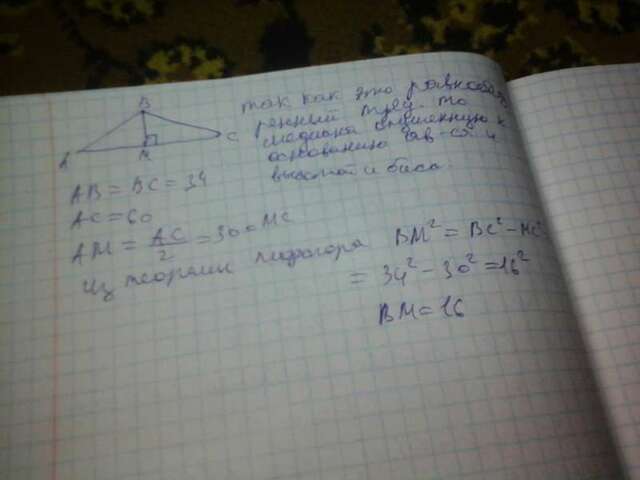 B
A
M
C
так как это равнобед-
ренный треу. то
медиана опущенную к
основанию яв-ся и
высотой и бисс.
AB = BC = 34
AC = 60
AM = AC/2 = 30 = MC
Из теоремы пифагора BM² = BC² - MC²
= 34² - 30² = 16²
BM = 16